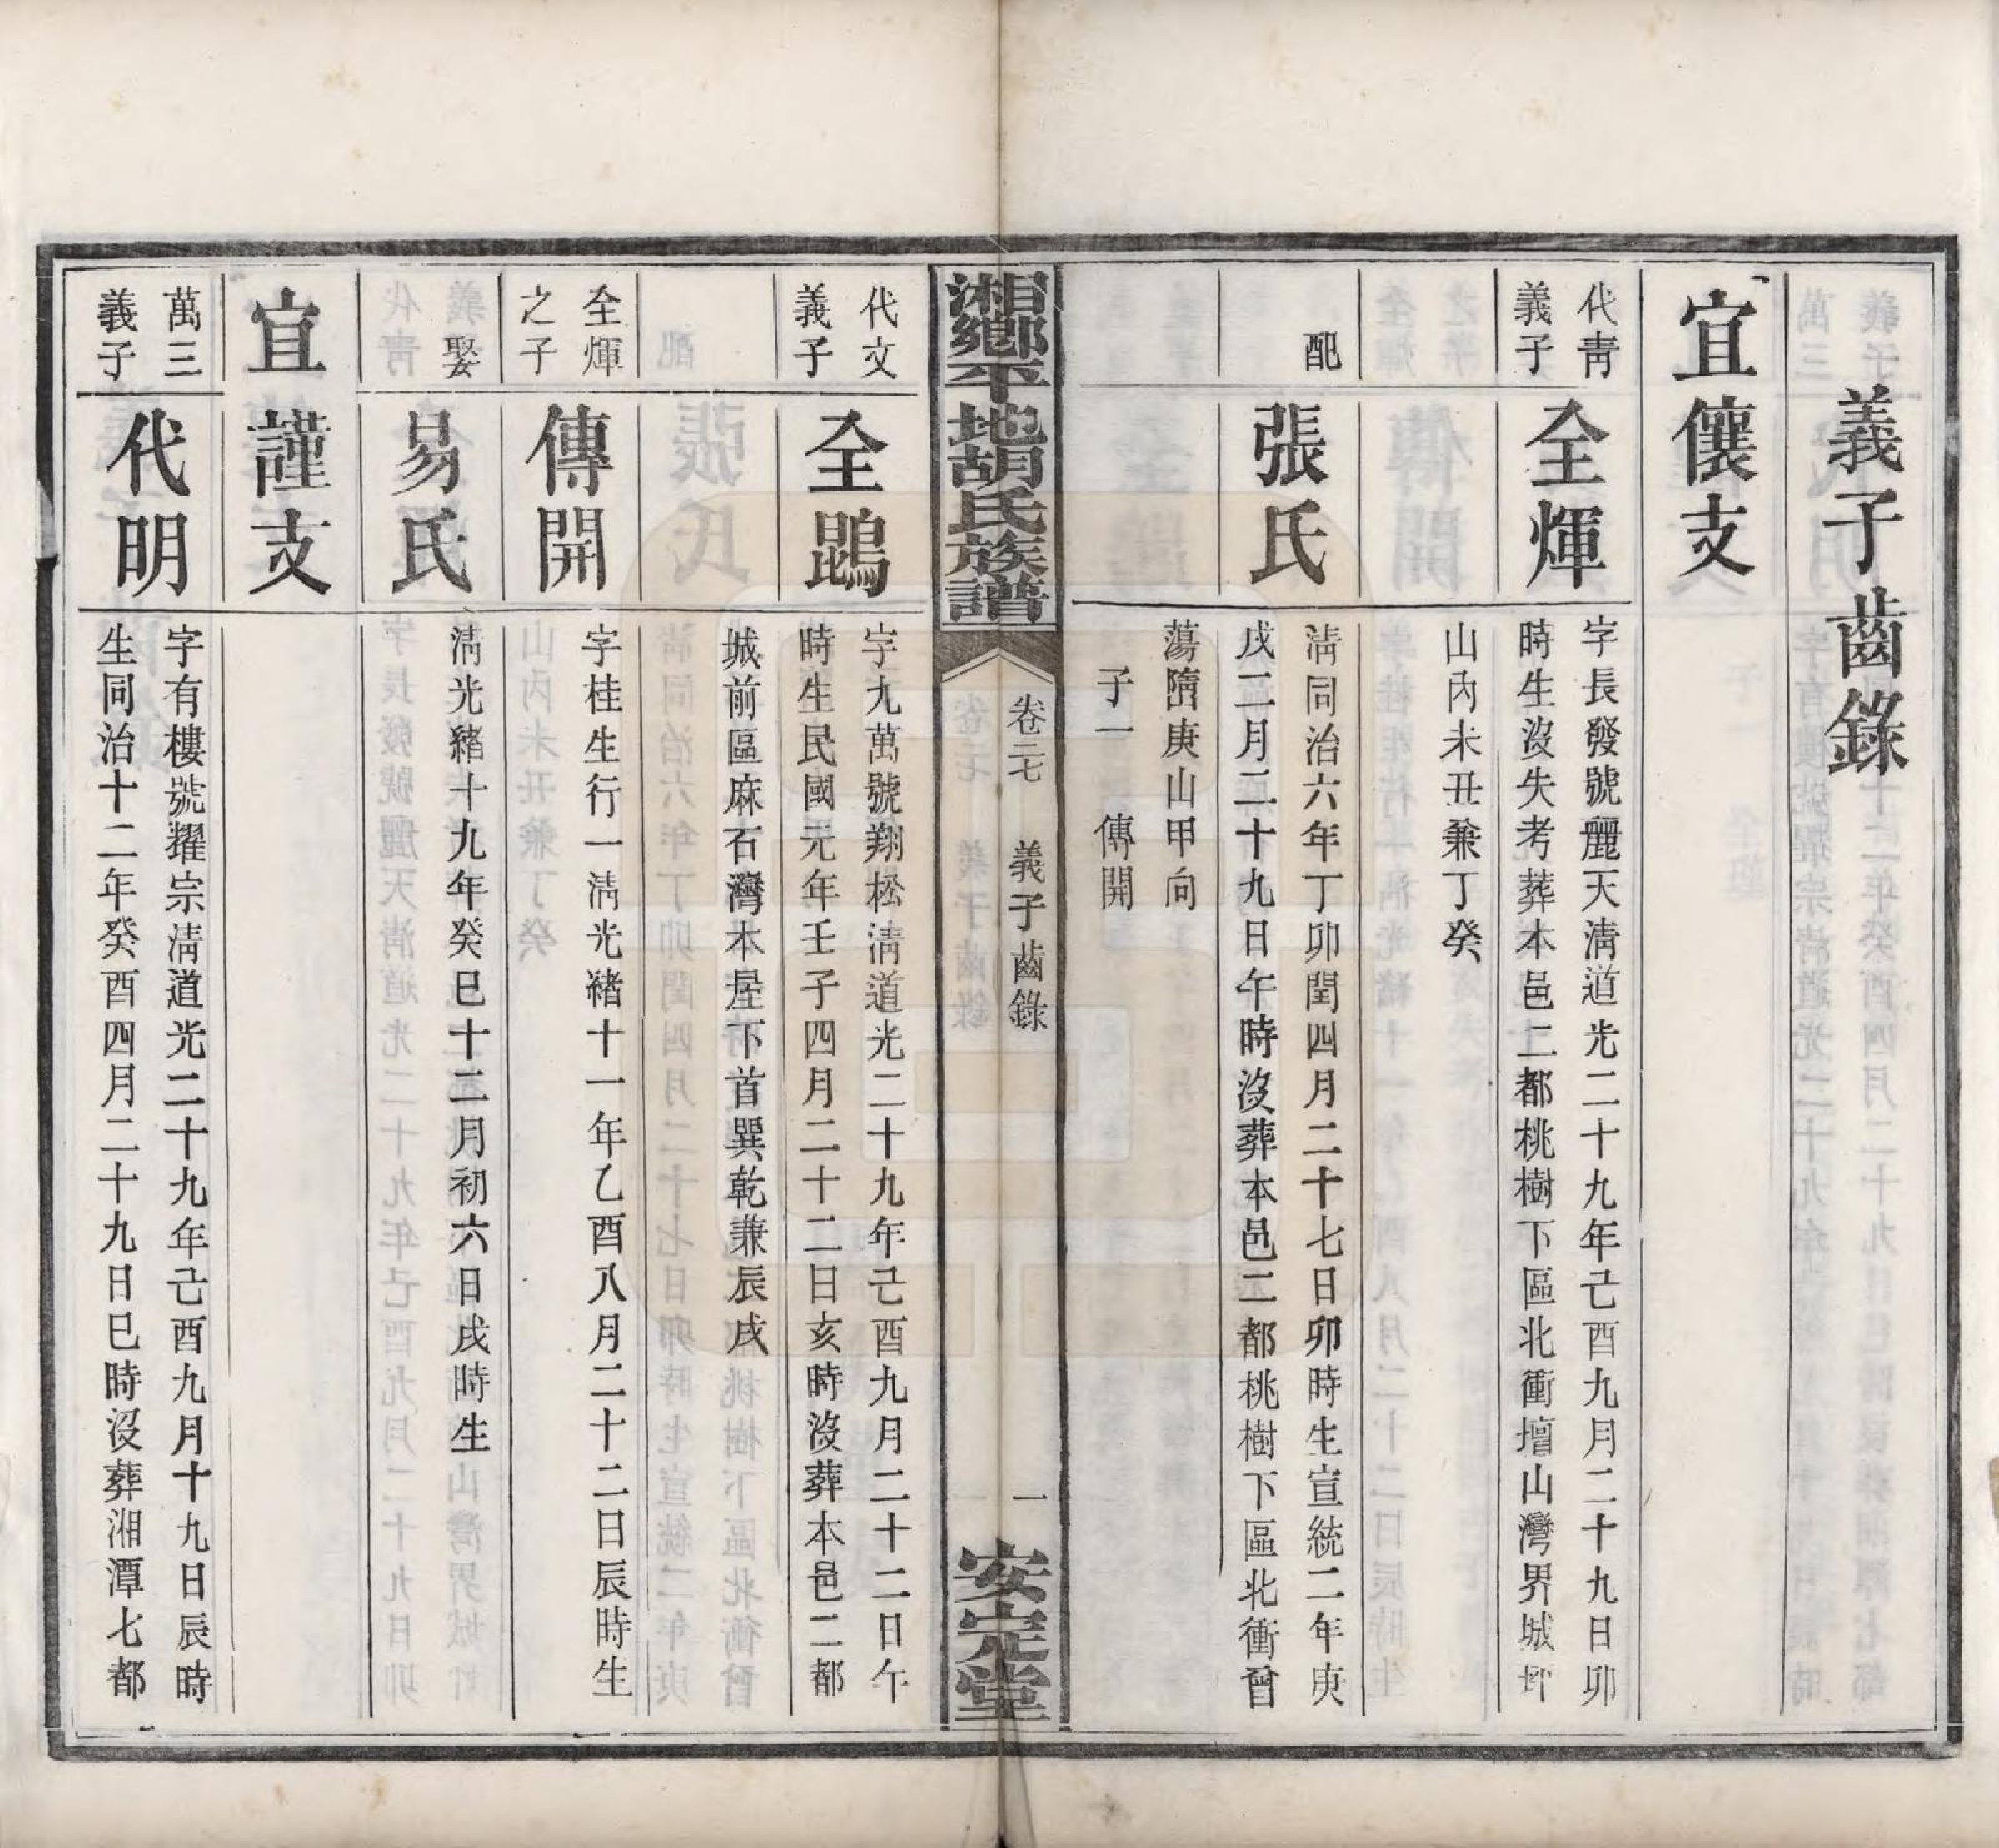 義子齒錄
宜儴支
代靑
義子
全煇
字長發號麗天淸道光二十九年己酉九月二十九日卯
時生沒失考葬本邑二都桃樹下區北衝壇山灣界城坪
山內未丑兼丁癸
配
張氏
淸同治六年丁卯閏四月二十七日卯時生宣統二年庚
戌二月二十九日午時沒葬本邑二都桃樹下區北衝曾
蕩隋庚山甲向
子一 傳開
湘鄉平地胡氏族譜
卷二七 義子齒錄
一
安定堂
代文
義子
全鵾
字九萬號翔松淸道光二十九年己酉九月二十二日午
時生民國元年壬子四月二十二日亥時沒葬本邑二都
城前區麻石灣本屋下首巽乾兼辰戌
全煇
之子
傳開
字桂生行一淸光緒十一年乙酉八月二十二日辰時生
娶
易氏
淸光緒十九年癸巳十二月初六日戌時生
宜謹支
萬三
義子
代明
字有樓號耀宗淸道光二十九年己酉九月十九日辰時
生同治十二年癸酉四月二十九日巳時沒葬湘潭七都